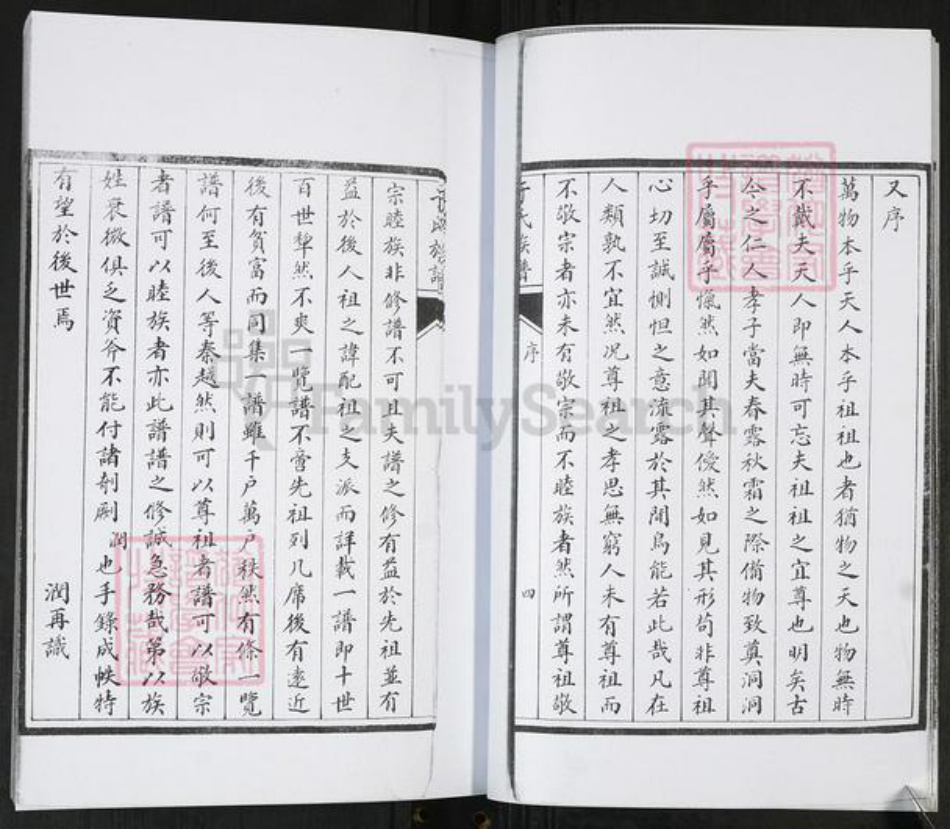 又序
萬物本乎天人本乎祖祖也者猶物之天也物無時
不戴夫天人即無時可忘夫祖祖之宜尊也明矣古
今之仁人孝子當夫春露秋霜之際備物致奠洞洞
乎屬屬乎愾然如聞其聲僾然如見其形苟非尊祖
心切至誠惻怛之意流露於其間烏能若此哉凡在
人類孰不宜然况尊祖之孝思無窮人未有尊祖而
不敬宗者亦未有敬宗而不睦族者然所謂尊祖敬
氏族譜
序
四
宗睦族非修譜不可且夫譜之修有益於先祖並有
益於後人祖之諱配祖之支派而詳載一譜即十世
百世犂然不爽一覽譜不啻先祖列几席後有遠近
後有貧富而同集一譜雖千戸萬戸秩然有條一覽
譜何至後人等秦越然則可以尊祖者譜可以敬宗
者譜可以睦族者亦此譜譜之修誠急務哉第以族
姓衰微俱乏資斧不能付諸剞劂潤也手錄成帙特
有望於後世焉
潤再識
FamilySearch